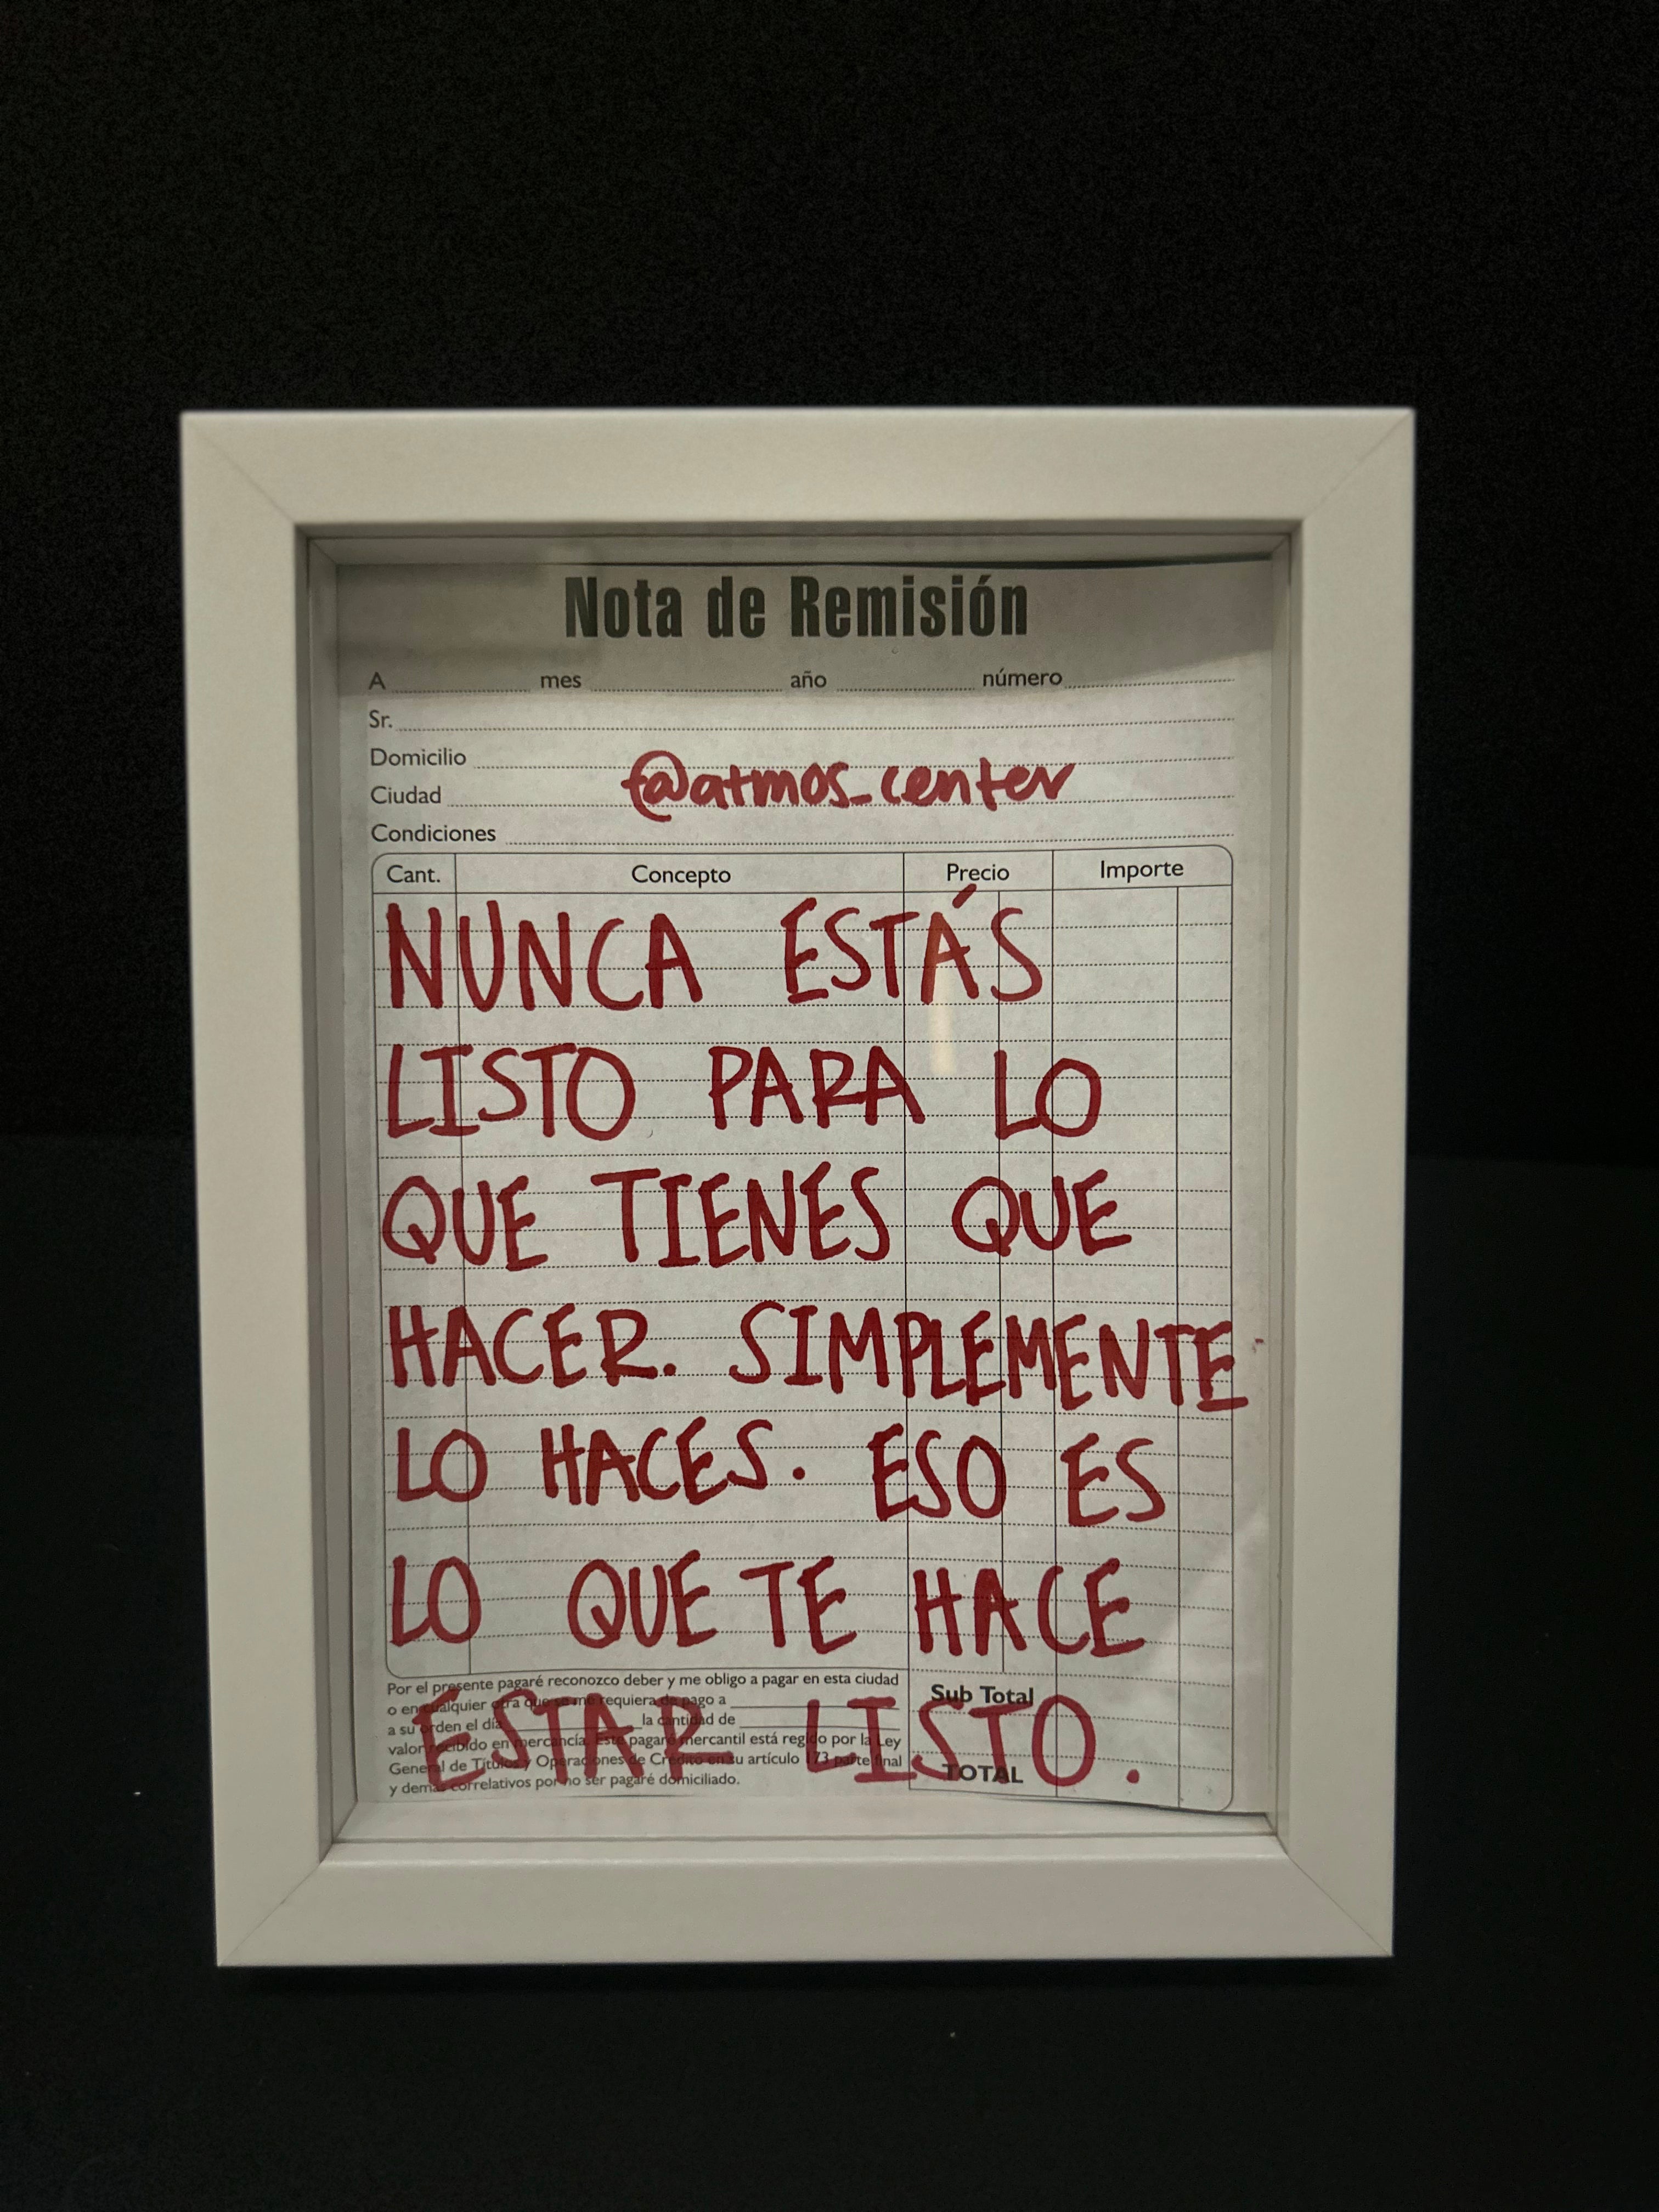 Nota de Remisión
A mes año número
Sr.
Domicilio
@atmos_center
Ciudad
Condiciones
Cant. Concepto Precio Importe
NUNCA ESTÁS
LISTO PARA LO
QUE TIENES QUE
HACER. SIMPLEMENTE
LO HACES. ESO ES
LO QUE TE HACE
ESTAR LISTO.
Por el presente pagaré reconozco deber y me obligo a pagar en esta ciudad
o en cualquier otra que se me requiera de pago a
a su orden el día la cantidad de
valor recibido en mercancía. Este pagaré mercantil está regido por la Ley
General de Títulos y Operaciones de Crédito en su artículo 173 parte final
y demás correlativos por no ser pagaré domiciliado.
Sub Total
TOTAL